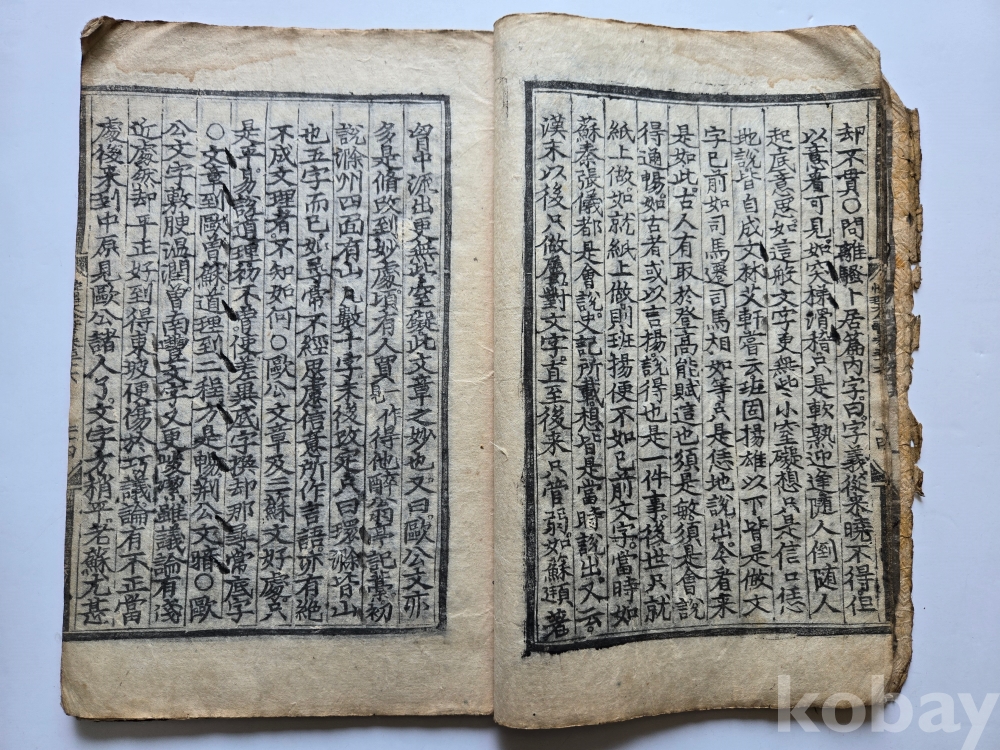 却不貫○問離騷卜居篇內字曰字義從來曉不得但
以意看可見如突梯滑稽只是軟熟迎逢隨人倒隨人
起底意思如這般文字更無些小窒礙想只是信口恁
地說皆自成文林艾軒嘗云班固揚雄以下皆是做文
字已前如司馬遷司馬相如等只是恁地說出今看來
是如此古人有取於登高能賦這也須是敏須是會說
得通暢如古者或以言揚說得也是一件事後世只就
紙上做如就紙上做則班揚便不如已前文字當時如
蘇秦張儀都是會說史記所載想皆是當時說出又云
漢末以後只做屬對文字直至後來只管弱如蘇頲著
胷中流出更無些窒礙此文章之妙也又曰歐公文亦
多是脩改到妙處頃有人買見作得他醉翁亭記藁初
說滁州四面有山凡數十字末後改定只曰環滁皆山
也五字而已如尋常不經思慮信意所作言語亦有絕
不成文理者不知如何○歐公文章及三蘇文好處只
是平易說道理初不曾使差異底字換却那尋常底字
○文章到歐曾蘇道理到二程方是暢荊公文暗○歐
公文字敷腴溫潤曾南豐文字又更峻潔雖議論有淺
近處然却平正好到得東坡便傷於巧議論有不正當
處後來到中原見歐公諸人了文字方稍平老蘇尤甚
kobay